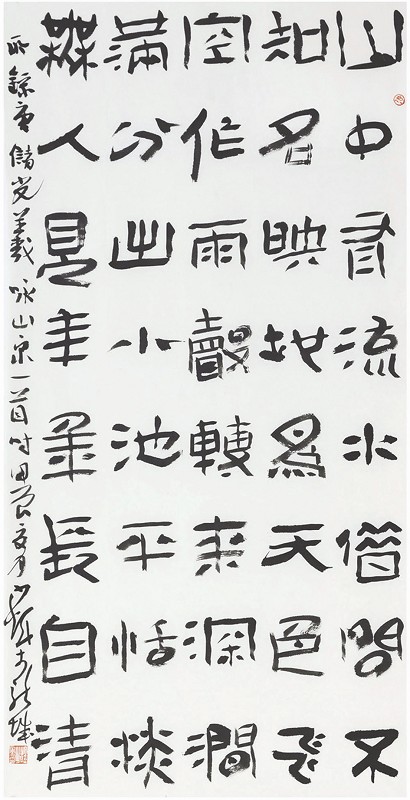 山中有流水借問不
知名映地為天色飛
空作雨聲轉來深澗
滿分出小池平恬淡
無人見年年長自清
錄唐儲光羲咏山泉一首時甲辰夏月